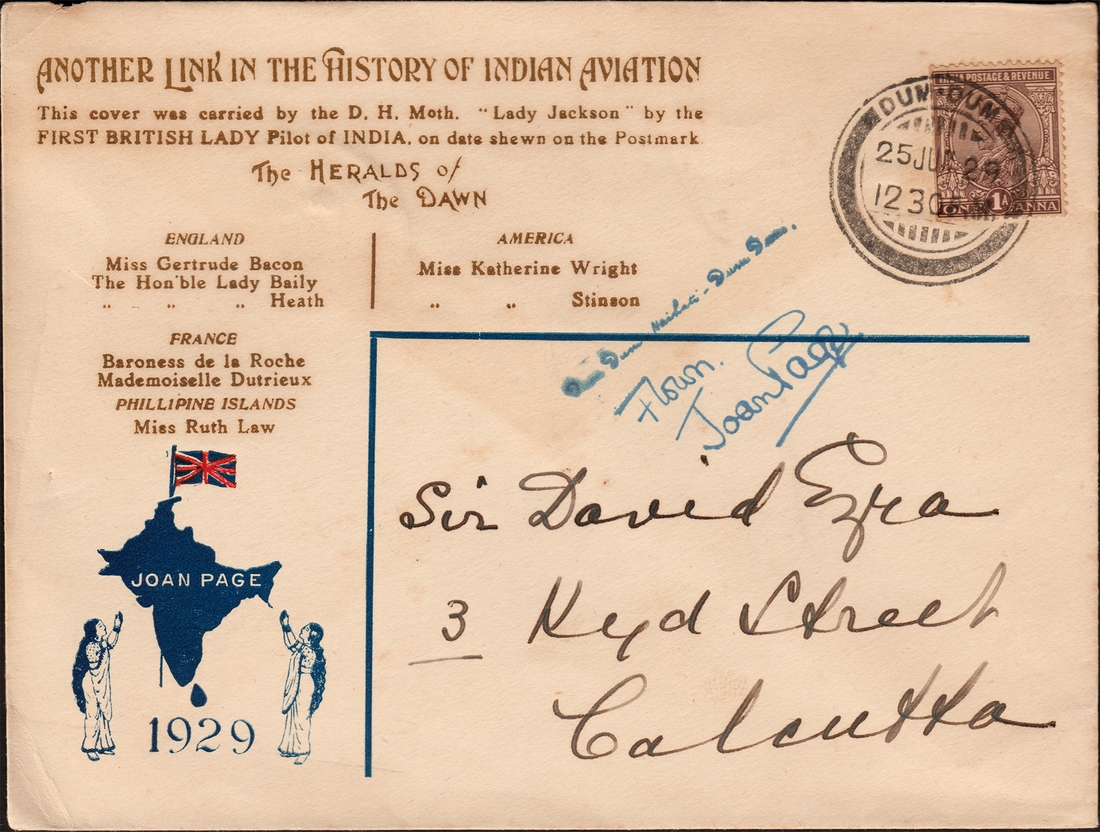 ANOTHER LINK IN THE HISTORY OF INDIAN AVIATION
This cover was carried by the D. H. Moth. "Lady Jackson" by the
FIRST BRITISH LADY Pilot of INDIA, on date shewn on the Postmark.
The HERALDS of
The DAWN
ENGLAND
Miss Gertrude Bacon
The Hon'ble Lady Baily
" " " Heath
AMERICA
Miss Katherine Wright
" " Stinson
FRANCE
Baroness de la Roche
Mademoiselle Dutrieux
PHILLIPINE ISLANDS
Miss Ruth Law
JOAN PAGE
1929
INDIA POSTAGE & REVENUE
ONE 1A ANNA
DUM-DUM
25 JU 29
12 30
Dum Dum Naihati - Dum Dum.
Flown.
Joan Page
Sir David Ezra
3 Kyd Street
Calcutta